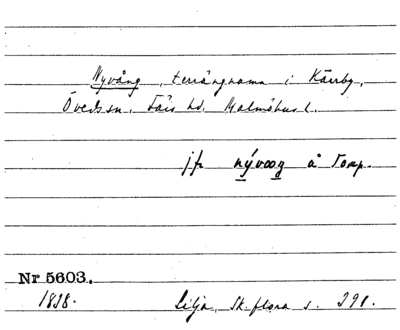 Nyvång, terrängnamn i Kärrby,
Öveds sn. Färs hd. Malmöhus l.
jfr nývaŋ å Torp.
Nr 5603.
1838. Lilja, Sk. flora s. 291.